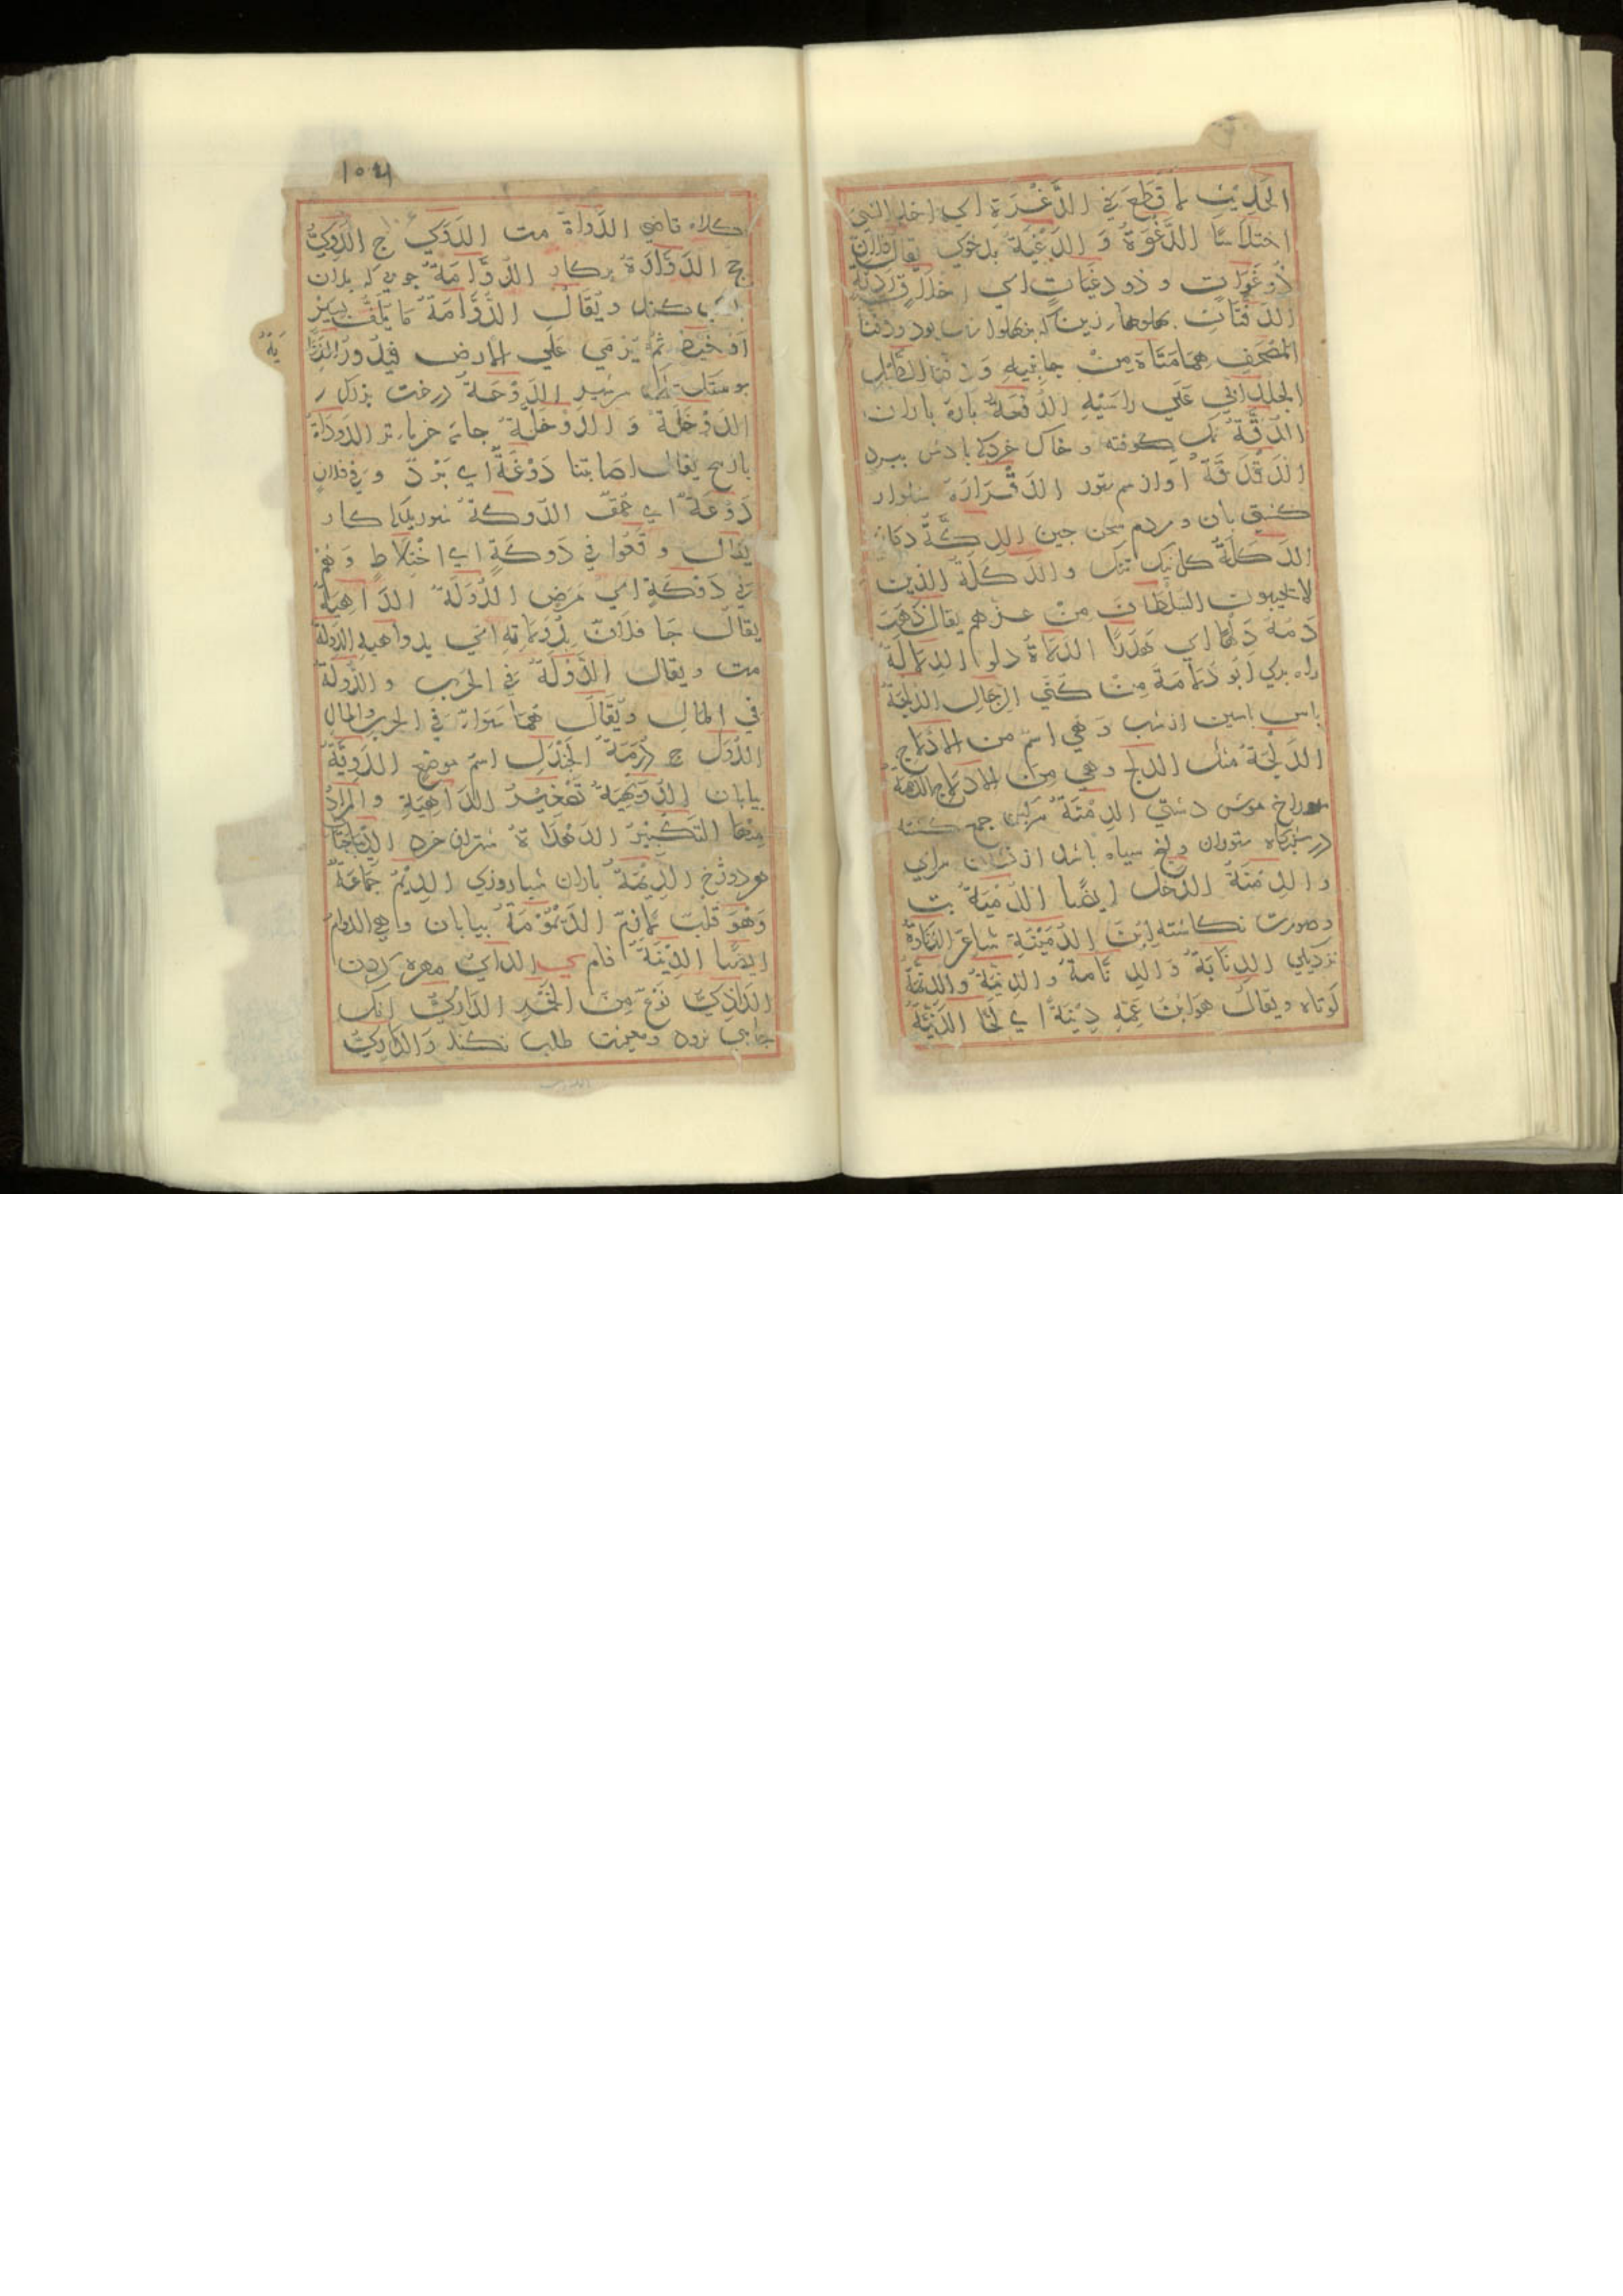 الحديث لا قطع في الدَّغْرَةِ اي اخذ الشي
اختلاسًا الدَّغْوَةُ وَ الدَّغْيَةُ بدخوي يقال فلان
ذُو دَغَوَاتٍ و ذو دغَيَاتٍ اي اخلاق رَدِيَّةٍ
الدَّفَّتَانِ
المصحف هما ضمامتاه مِنْ جانبيهِ وَ دفتا الطبل
الجلدان اللتان عَلَي راسَيْهِ الدُّفْعَةُ بارهٔ باران
الدُّقَّةُ نمك كوفته و خاك خرد كه بادش ببرد
الدَّقْدَقَةُ اواز سم ستور الدَّقْرَارَةُ شلوار
كشتي بان و مردم سخن جين الدكَّةُ دكان
الدَّكَلَةُ كل تنك والدَّكَلَةُ الذين
لا يجيبون السُّلْطَانَ مِنْ عزهم يقال ذَهَبَ
دَمُهُ دَلْهًا اي هَدَرًا الدَّلاةُ دلو الدِّلالَةُ
راه بري ابُو دُلامَةَ مِنْ كُنَي الرِّجالِ الدُّلْجَةُ
باس بسين از شب وَ هي اسْم من الادلاج
الدَّلْجَةُ مثله الدلج وهي مِنَ الادلاج الدمَّة
سوراخ موش دشتي الدِّمْنَةُ سركين جمع كشته
در شبكاه ستوران و يخ سياه باشد از نشان سراي
و الدِّمْنَةُ الذَّحْل ايضًا الدُّمْيَةُ بت
و صورت نكاشته ابْنُ الدُّمَيْنَةِ شاعر الدَّنَاوةُ
نزديكي الدِّنَّابَةُ وَ الدِّنَّامَةُ و الدِّنَّبَةُ والدِّنَّمَةُ
كوتاه ويقال هو ابْنُ عَمِّهِ دِنْيَةً اي لَحًّا الدَّنِيَّةُ
١٥٦
كلاه قاضي الدَّوَاةُ مت الدَّوَي ج الدُّوِيُّ
جج الدَّوَّارَةُ بركار الدُّوَّامَةُ جوبي كه بدان
بازي كنند ويُقَالُ الدُّوَّامَةُ مَا يُلَفُّ بسَيْرٍ
اَوْ خَيْطٍ ثُمَّ يُرْمَي عَلَي الارض فيدُورُ الدُّوَا
يَةُ
بوستك شير الدَّوْحَةُ درخت بزرك
الدَّوْخَلَةُ وَ الدَّوْخَلَّةُ جاي خرما تر الدَّوْدَاةُ
بازيج يقال اصابتنا دَوْغَةٌ اي بَرْدٌ و في فلانٍ
دَوْغَةٌ اي حُمْقٌ الدَّوكَةُ شور
يقال و قَعُوا فِي دَوكَةٍ اي اخْتِلَاطٍ وَ هُمْ
في دَوْكَةٍ اي مَرَضٍ الدُّوَلَةُ الدَّاهِيَةُ
يقال جا فلانٌ بِدُوَلَاتِهِ اي بدواهيهِ الدَّوْلَةُ
مت و يقال الدَّوْلَةُ في الحَرْبِ و الدُّولَةُ
في المالِ ويُقَالُ هُمَا سَوَاءٌ في الحرب والمالِ
الدُّوَل ج دُومَةُ الجَنْدَلِ اسْمُ موضعٍ الدَّوِيَّةُ
بيابان الدُّوَيْهِيَةُ تَصْغِيْرُ الدَّاهِيَةِ والمرادُ
مِنْهَا التَّكْبِيْرُ الدَّهْدَاةُ شتران خرد الدِّيْبَاجَتَا
هر دو رخ الدِّيْمَةُ باران شباروزي الدِّيَمُ جَمَاعَةٌ
وَهُوَ قلبٌ لَازِمٌ الدَّيْمُومَةُ بيابان و هي الدوام
ايضًا الدِّيْنَةُ فام ي الداي مهره كردن
الدَّاذِيُّ نَوْعٌ مِنَ الخَمْرِ الدَّارِيُّ انك
بجايي نرود و معيشت طلب نكند وَ الدَّارِيُّ